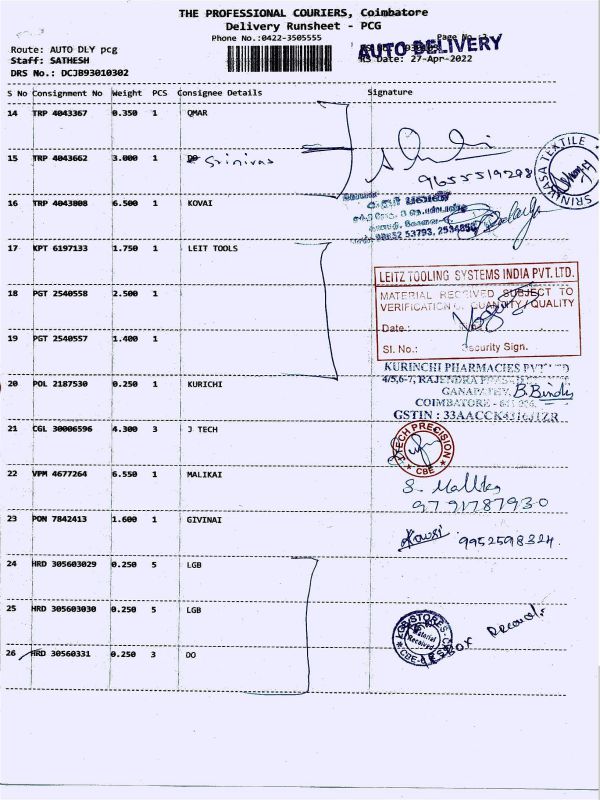 THE PROFESSIONAL COURIERS, Coimbatore
Delivery Runsheet - PCG
Phone No.:0422-3505555
Page No.:2
AUTO DELIVERY
Route: AUTO DLY pcg
Staff: SATHESH
RS Date: 27-Apr-2022
DRS No.: DCJB93010302
S No Consignment No Weight PCS Consignee Details Signature
14 TRP 4043367 0.350 1 QMAR
15 TRP 4043662 3.000 1 DO Srinivas
9655519298
SRINIVASA TEXTILE
16 TRP 4043808 6.500 1 KOVAI
53793,
17 KPT 6197133 1.750 1 LEIT TOOLS
LEITZ TOOLING SYSTEMS INDIA PVT. LTD.
MATERIAL RECEIVED SUBJECT TO
VERIFICATION OF QUANTITY / QUALITY
Date :
Sl. No.: Security Sign.
18 PGT 2540558 2.500 1
19 PGT 2540557 1.400 1
20 POL 2187530 0.250 1 KURICHI
KURINCHI PHARMACIES PVT LTD
4/5,6-7, RAJENDRA
GANAPATHY, B.Bindu
COIMBATORE -
GSTIN : 33AACCK4316J1ZR
21 CGL 30006596 4.300 3 J TECH
J-TECH PRECISION
CBE
22 VPM 4677264 6.550 1 MALIKAI
9791787930
23 PON 7842413 1.600 1 GIVINAI
Kowsi 9952598324
24 HRD 305603029 0.250 5 LGB
25 HRD 305603030 0.250 5 LGB
STORES
Material
Received
CBE
26 HRD 30560331 0.250 3 DO